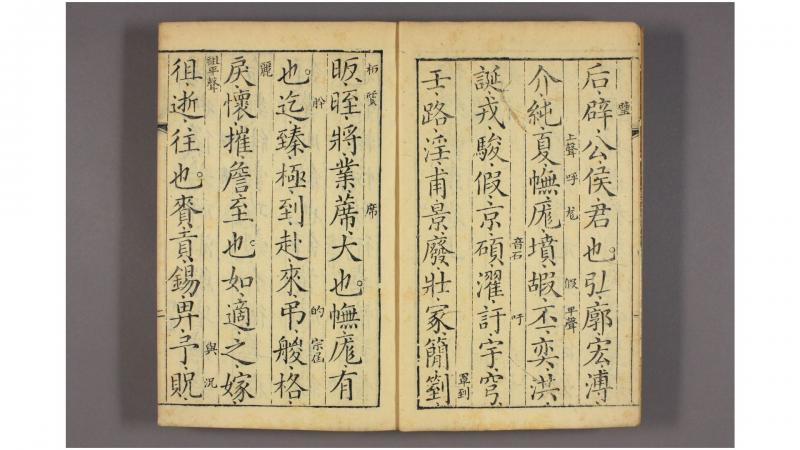 璧
后辟公侯君也。弘廓宏溥
上聲 呼 尨 假 平聲
介純夏幠厖墳嘏丕奕洪
音石 吁
誕戎駿假京碩濯訏宇穹
罩到
壬路淫甫景廢壯冢簡箌
質 席
昄晊將業蓆大也。幠厖有
的 宗屆
也。迄臻極到赴來弔艐格
麗
戾懷摧詹至也。如適之嫁
祖平聲 與 況
徂逝往也。賚貢錫畀予貺